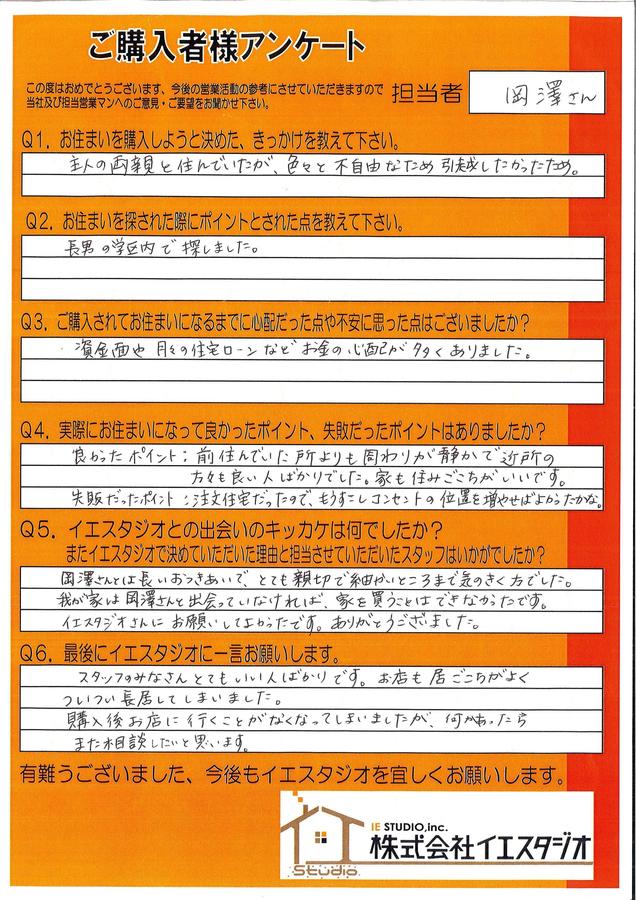 ご購入者様アンケート
この度はおめでとうございます、今後の営業活動の参考にさせていただきますので
当社及び担当営業マンへのご意見・ご要望をお聞かせ下さい。
担当者 岡澤さん
Q1．お住まいを購入しようと決めた、きっかけを教えて下さい。
主人の両親と住んでいたが、色々と不自由なため引越したかったため。
Q2．お住まいを探された際にポイントとされた点を教えて下さい。
長男の学区内で探しました。
Q3．ご購入されてお住まいになるまでに心配だった点や不安に思った点はございましたか？
資金面や月々の住宅ローンなどお金の心配が多くありました。
Q4．実際にお住まいになって良かったポイント、失敗だったポイントはありましたか？
良かったポイント：前住んでいた所よりも周わりが静かで近所の
方々も良い人ばかりでした。家も住みごこちがいいです。
失敗だったポイント：注文住宅だったので、もうすこしコンセントの位置を増やせばよかったかな。
Q5．イエスタジオとの出会いのキッカケは何でしたか？
またイエスタジオで決めていただいた理由と担当させていただいたスタッフはいかがでしたか？
岡澤さんとは長いおつきあいで、とても親切で細かいところまで気のきく方でした。
我が家は岡澤さんと出会っていなければ、家を買うことはできなかったです。
イエスタジオさんにお願いしてよかったです。ありがとうございました。
Q6．最後にイエスタジオに一言お願いします。
スタッフのみなさんとてもいい人ばかりです。お店も居ごこちがよく
ついつい長居してしまいました。
購入後お店に行くことがなくなってしまいましたが、何かあったら
また相談したいと思います。
有難うございました、今後もイエスタジオを宜しくお願いします。
IE STUDIO,inc.
株式会社イエスタジオ
Studio